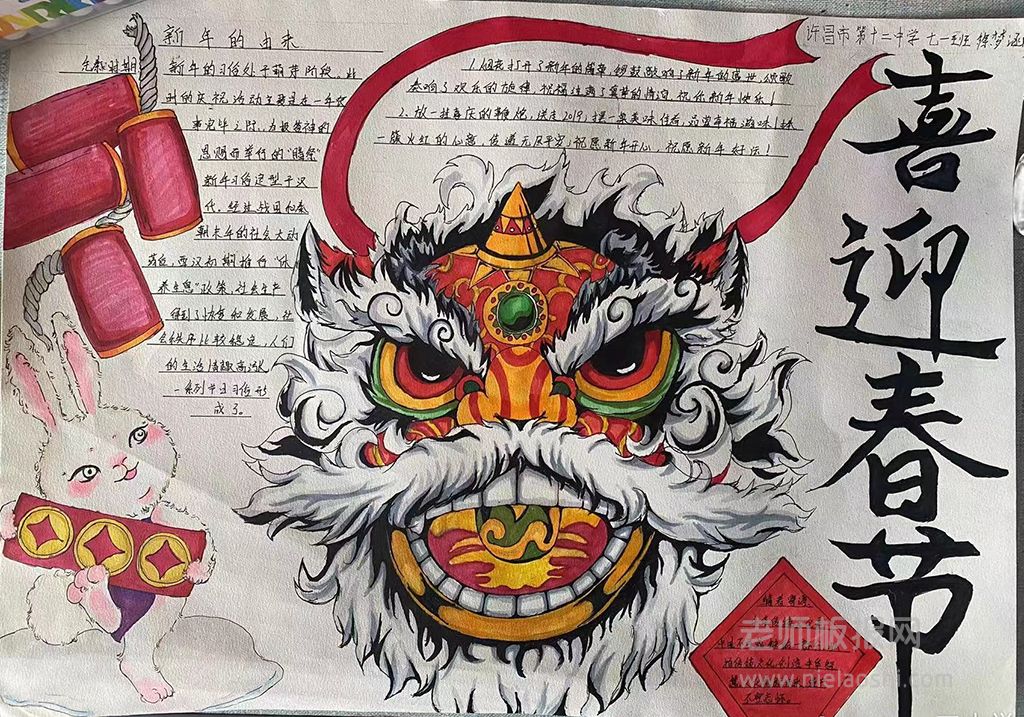 许昌市 第十二中学 七一班 徐梦涵
喜迎春节
新年的由来
先秦时期
新年的习俗处于萌芽阶段，此
时的庆祝活动主要是在一年农
事完毕之际，为报答神的
恩赐而举行的“腊祭”
新年习俗定型于汉
代，经过战国和秦
朝末年的社会大动
荡后，西汉初期推行“休
养生息”政策，社会生产
得到了恢复和发展，社
会秩序比较稳定，人们
的生活情趣高涨
一系列节日习俗形
成了。
1.烟花打开了新年的篇章，锣鼓敲响了新年的
奏响了欢乐的旋律，祝福
祝你新年快乐！
2.放一挂喜庆的鞭炮，送走2019；摆一桌美味佳肴，品尝幸福滋味！
一簇火红的心意，传递无尽平安；祝愿新年开心，祝愿新年好运！
编者寄语
老师板报网
www.nielaoshi.com